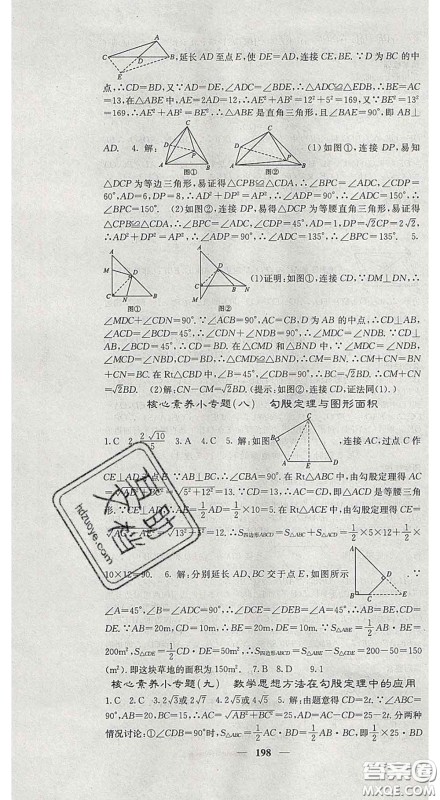 ,延长 AD 至点 E,使 DE=AD,连接 CE,BE. ∵D 为 BC 的中
点,∴CD=BD,又∵AD=DE,∠ADC=∠BDE,∴△ADC≌△EDB,∴BE=AC
=13,在△ABE 中,AE=2AD=12,∴AE²+AB²=12²+5²=169,又∵BE²=13²
=169,∴AE²+AB²=BE²,∴△ABE 是直角三角形,且∠BAE=90°,即 AB⊥
AD. 4. 解: (1)如图①,连接 DP,易知
图① 图②
△DCP 为等边三角形,易证得△CPB≌△CDA,∴∠BPC=∠ADC,∠CDP=
60°,AD=6,DP=8,∴AD²+DP²=AP²,∴∠ADP=90°,∴∠ADC=150°,
∴∠BPC=150°. (2)如图②,连接 DP,易得△DCP 为等腰直角三角形,易证得
△CPB≌△CDA,∴∠BPC=∠ADC,∠CDP=45°,AD=1,DP=√2CP=2√2,
∴AD²+DP²=AP²,∴∠ADP=90°,∴∠ADC=135°,∴∠BPC=135°. 5.
(1)证明:如图①,连接 CD,∵DM⊥DN,∴
图① 图②
∠MDC+∠CDN=90°. ∵∠ACB=90°,AC=CB,D 为 AB 的中点,∴CD⊥AB,
∠ACD=∠BCD=45°=∠B,∴∠CDN+∠NDB=90°,∴∠MDC=∠NDB,
∵∠B=45°,∴CD=BD. 在△CMD 和△BND 中,∵∠MDC=∠NDB,CD=BD,
∠MCD=∠NBD,∴△CMD≌△BND,∴CM=BN,∴CN+CM=CN+BN
=CB. 在 Rt△CBD 中,∠CDB=90°,CD=BD,∴CB=√2BD,∴CN+CM
=√2BD. (2)解:CN−CM=√2BD. (提示:如图②,连接 CD,证法同(1).)
核心素养小专题(八) 勾股定理与图形面积
1. C 2. 2√10/5 3. A 4. C 5. 解:如图 ,连接 AC,过点 C 作
CE⊥AD 于 ∵AB⊥BC,∴∠CBA=90°. 在 Rt△ABC 中,由勾股定理得 AC
=√5²+12²=13. ∵CD=13,∴AC=CD. ∵CE⊥AD,∴△ACD 是等腰三角
形 AE=1/2 AD=1/2×10=5. 在 Rt△ACE 中,由勾股定理得
CE =12,∴S四边形ABCD=S△ABC+S△CAD=1/2×5×12+1/2×
10×12=90. 6. 解:分别延长 AD、BC 交于点 E,如图所示 . ∵
∠A=45°,∠B=∠ADC=90°,∴∠DCE=∠DEC=∠A=45°,∴AB=BE,CD=
DE. ∵AB=20m,CD=10m,∴BE=20m,DE=10m. ∵S△ABE=1/2AB·BE=
200m²,S△CDE=1/2CD·DE=50m²,∴S四边形ABCD=S△ABE−S△CDE=200−50=150
(m²). 即这块草地的面积为150m². 7. B 8. D 9. 1
核心素养小专题(九) 数学思想方法在勾股定理中的应用
1. C 2. C 3. 2√13或2√7 4. √2或√10 5. 解:由题意得 CD=2t. ∵∠ABC=
90°,AB=20,BC=15,∴AC=√AB²+BC²=25,∴AD=AC−CD=25−2t. 分两种
情况讨论:①∠CDB=90°时,S△ABC=1/2AC·BD=1/2AB·BC,即1/2×25·BD
198
快对文档
hdzuoye.com
答案圈
MXQE.COM